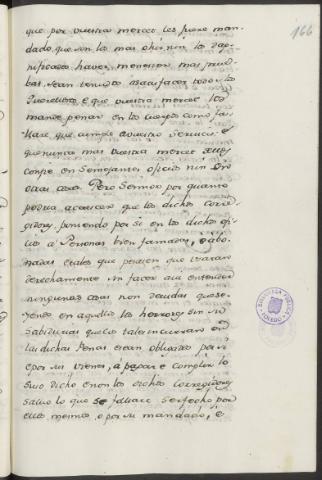 166
que por vuestra merced les fuere man-
dado, que son los mas ofi nin los dap-
nificados haver, menester mas prue-
bas, sean tenudos asatisfacer todos los
Pueblos, E que vuestra merced los
mande penar en los cuerpos como fa-
llare que cumple avuestro Servicio: E
que nunca mas vuestra merced
en Semejantes oficios nin en
otras cosa. Pero Sennor por quanto
podria acaescer que los dichos corre-
gidores, poniendo por sí en los dichos ofi-
cios á Personas bien famadas, é abo-
nadas e tales que pensen que usaran
derechamente sin facer a su entender
ningunas cosas non devidas que se-
yendo en aquello los herrores sin su
sabiduria que los tales incurran en
las dichas Penas e sean obligados por sí
e por sus vienes, á pagar e complir lo
suso dicho e non los dichos Corregidores
salvo lo que se fallare ser fecho por
ellos mesmos, o por su mandado, é
BIBLIOTECA PUBLICA
TOLEDO